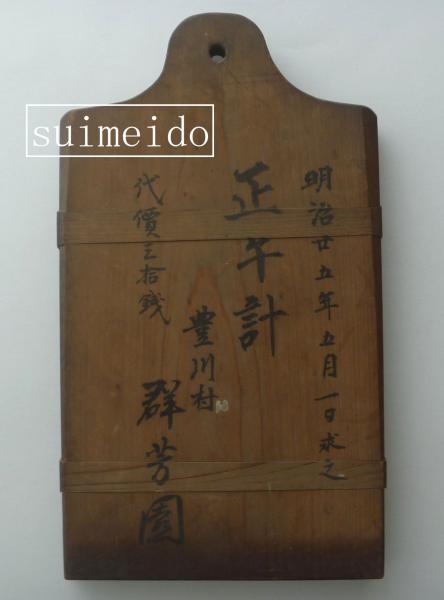 suimeido
明治廿五年五月一日求之
正午計
豊川村
群芳園
代價三拾錢